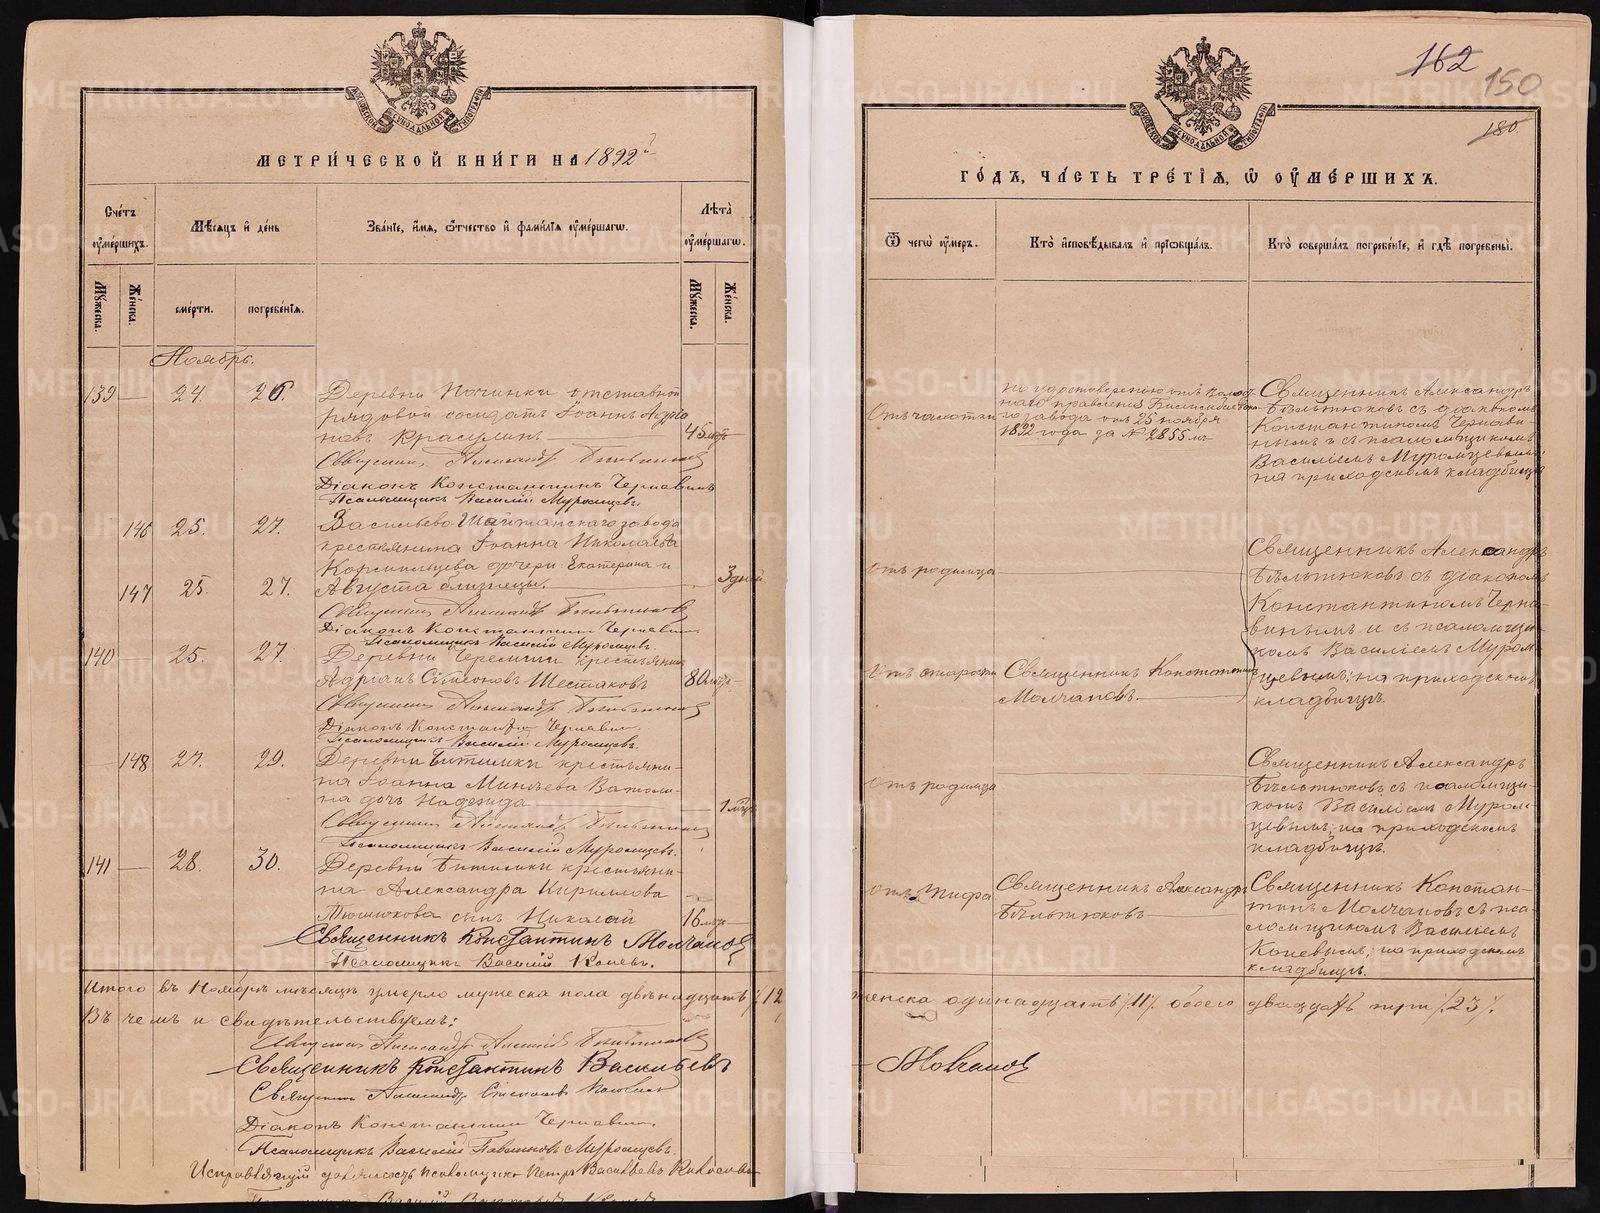 МЕТРИ́ЧЕСКОЙ КНИ́ГИ НА 1892 й
Сче́тъ оу҆ме́ршихъ.
Мѣ́сяцъ и҆ де́нь
Зва́нїе, и҆́мѧ, ѻ҆́тчество и҆ фами́лїѧ оу҆ме́ршагѡ.
Лѣ́та оу҆ме́ршагѡ.
Мꙋ́жеска.
Же́нска.
сме́рти.
погребе́нїѧ.
Мꙋ́жеска.
Же́нска.
Ноябрь.
139 24. 26. Деревни Починки отставной
рядовой солдатъ Іоаннъ Адріа
новъ Красулинъ 45 лѣтъ
Священникъ Александръ Бѣльтюковъ
Діаконъ Константинъ Чернавинъ
Псаломщикъ Василій Муромцевъ.
146 25. 27. Васильево-Шайтанскаго завода
крестьянина Іоанна Николаева
Кормильцева дочери: Екатерина и
147 25. 27. Августа близнецы. 3 дней
Священникъ Александръ Бѣльтюковъ
Діаконъ Константинъ Чернавинъ
Псаломщикъ Василій Муромцевъ.
140 25. 27. Деревни Черемши крестьянинъ
Адріанъ Симеоновъ Шестаковъ 80 лѣтъ
Священникъ Александръ Бѣльтюковъ
Діаконъ Константинъ Чернавинъ
Псаломщикъ Василій Муромцевъ.
148 27. 29. Деревни Битимки крестьяни-
на Іоанна Минѣева Ватоли-
на дочь Надежда 1 мѣс.
Священникъ Александръ Бѣльтюковъ
Псаломщикъ Василій Муромцевъ.
141 28. 30. Деревни Битимки крестьяни-
на Александра Кириллова
Тюшнкова сынъ Николай 16 лѣтъ
Священникъ Константинъ Молчановъ
Псаломщикъ Василій Коневъ.
Итого въ Ноябрѣ мѣсяцѣ умерло мужеска пола двѣнадцать /12
Въ чемъ и свидѣтельствуемъ:
Священникъ Александръ Алексіевъ Бѣльтюковъ
Священникъ Константинъ Васильевъ
Священникъ Александръ Стефановъ
Діаконъ Константинъ Чернавинъ.
Псаломщикъ Василій Павлиновъ Муромцевъ
Исправляющій должность псаломщика Петръ Васильевъ
Псаломщикъ Василій Викторовъ Коневъ
162
150
180
ГО́ДЪ, ЧА́СТЬ ТРЕ́ТЇѦ, Ѽ ОУ҆МЕ́РШИХЪ.
Ѿ чегѡ̀ оу҆́меръ.
Кто̀ и҆сповѣ́дывалъ и҆ прїѡбща́лъ.
Кто̀ соверша́лъ погребе́нїе, и҆ гдѣ̀ погребены̀.
Отъ чахотки
По удостоверенію отъ Волост-
наго правленія Билимбаев-
го завода отъ 25 ноября
1892 года за № 2855 мъ
Священникъ Александръ
Бѣльтюковъ съ діакономъ
Константиномъ Чернави-
нымъ и съ псаломщикомъ
Василіемъ Муромцевымъ;
на приходскомъ кладбищѣ
отъ родимца
Священникъ Александръ
Бѣльтюковъ съ діакономъ
Константиномъ Черна-
винымъ и съ псаломщи-
комъ Василіемъ Муром-
цевымъ; на приходскомъ
кладбищѣ.
Отъ старости
Священникъ Константинъ
Молчановъ
отъ родимца
Священникъ Александръ
Бѣльтюковъ съ псаломщи-
комъ Василіемъ Муром-
цевымъ; на приходскомъ
кладбищѣ.
отъ тифа
Священникъ Александръ
Бѣльтюковъ
Священникъ Констан-
тинъ Молчановъ съ пса-
ломщикомъ Василіемъ
Коневымъ; на приходскомъ
кладбищѣ.
женска одинадцать /11/. обоего двадцать три /23/.
Молчановъ